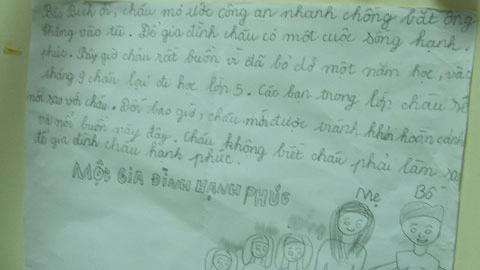 Bà Bích ơi, cháu mơ ước công an nhanh chóng bắt ông
Thắng vào tù. Để gia đình cháu có một cuộc sống hạnh
phúc. Bây giờ cháu rất buồn vì đã bỏ dở một năm học, và
tháng 9 cháu lại đi học lớp 5. Các bạn trong lớp cháu sẽ
nói sao với cháu. Đến bao giờ, cháu mới được tránh khỏi hoàn cảnh
và nỗi buồn này đây. Cháu không biết cháu phải làm sao
để gia đình cháu hạnh phúc.
MỘT GIA ĐÌNH HẠNH PHÚC
Mẹ
Bố